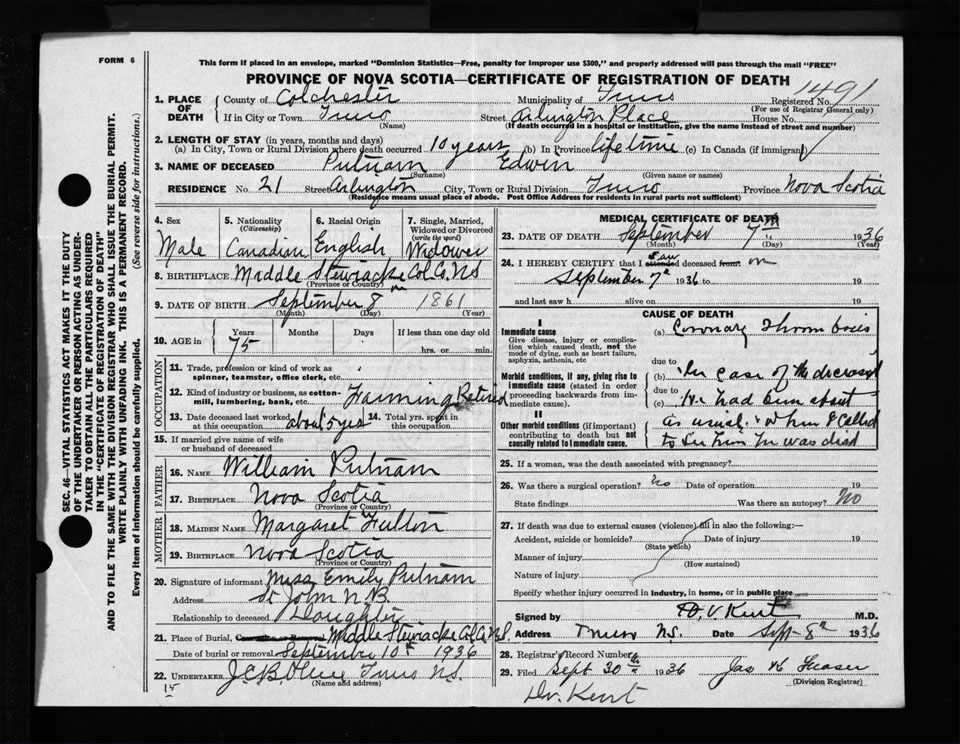 FORM 6
This form if placed in an envelope, marked "Dominion Statistics—Free, penalty for improper use $300," and properly addressed will pass through the mail "FREE"
PROVINCE OF NOVA SCOTIA—CERTIFICATE OF REGISTRATION OF DEATH
1491
1. PLACE OF DEATH { County of Colchester Municipality of Truro Registered No.
(For use of Registrar Generral only)
If in City or Town Truro (Name) Street Arlington Place House No.
(If death occurred in a hospital or institution, give the name instead of street and number)
2. LENGTH OF STAY (in years, months and days)
(a) In City, Town or Rural Division where death occurred 10 years (b) In Province lifetime (c) In Canada (if immigrant)
3. NAME OF DECEASED Putnam Edwin
(Surname) (Given name or names)
RESIDENCE No. 21 Street Arlington City, Town or Rural Division Truro Province Nova Scotia
(Residence means usual place of abode. Post Office Address for residents in rural parts not sufficient)
4. Sex Male
5. Nationality (Citizenship) Canadian
6. Racial Origin English
7. Single, Married, Widowed or Divorced (write the word) Widower
8. BIRTHPLACE Middle Stewiacke Col. Co. N.S
(Province or Country)
9. DATE OF BIRTH September 8th 1861
(Month) (Day) (Year)
10. AGE in { Years 75 Months Days If less than one day old
hrs. or min.
OCCUPATION
11. Trade, profession or kind of work as spinner, teamster, office clerk, etc.
12. Kind of industry or business, as cotton-mill, lumbering, bank, etc. Farming Retired
13. Date deceased last worked at this occupation about 5 yrs 14. Total yrs. spent in this occupation
15. If married give name of wife or husband of deceased
FATHER
16. NAME William Putnam
17. BIRTHPLACE Nova Scotia
(Province or Country)
MOTHER
18. MAIDEN NAME Margaret Fulton
19. BIRTHPLACE Nova Scotia
(Province or Country)
20. Signature of informant Miss Emily Putnam
Address St John N.B.
Relationship to deceased Daughter
21. Place of Burial, Cremation or Removal Middle Stewiacke Col. Co. N.S.
Date of burial or removal September 10th 1936
22. UNDERTAKER Truro N.S.
(Name and address)
15
MEDICAL CERTIFICATE OF DEATH
23. DATE OF DEATH September 7th 1936
(Month) (Day) (Year)
24. I HEREBY CERTIFY that I attended saw deceased from: on
September 7th 1936 to 19
and last saw h alive on 19
CAUSE OF DEATH
I
Immediate cause
Give disease, injury or complication which caused death, not the mode of dying, such as heart failure, asphyxia, asthenia, etc
(a) Coronary Thrombosis
due to
Morbid conditions, if any, giving rise to immediate cause (stated in order proceeding backwards from immediate cause).
(b) In case of the deceased
due to
(c) He had been about
II
Other morbid conditions (if important) contributing to death but not causally related to immediate cause.
as usual. When I called
to see him he was dead
25. If a woman, was the death associated with pregnancy?
26. Was there a surgical operation? No Date of operation 19
State findings Was there an autopsy? No
27. If death was due to external causes (violence) fill in also the following:—
Accident, suicide or homicide? Date of injury 19
(State which)
Manner of injury
(How sustained)
Nature of injury
Specify whether injury occurred in industry, in home, or in public place
Signed by D. V. Kent M.D.
Address Truro N.S. Date Sept 8th 1936
28. Registrar's Record Number
29. Filed Sept 30th 1936 Jas H Fraser
(Division Registrar)
Dr. Kent
SEC. 46—VITAL STATISTICS ACT MAKES IT THE DUTY
OF THE UNDERTAKER OR PERSON ACTING AS UNDER-
TAKER TO OBTAIN ALL THE PARTICULARS REQUIRED
IN THE "CERTIFICATE OF REGISTRATION OF DEATH"
AND TO FILE THE SAME WITH THE DIVISION REGISTRAR WHO SHALL ISSUE THE BURIAL PERMIT.
WRITE PLAINLY WITH UNFADING INK. THIS IS A PERMANENT RECORD.
Every item of information should be carefully supplied. (See reverse side for instructions.)